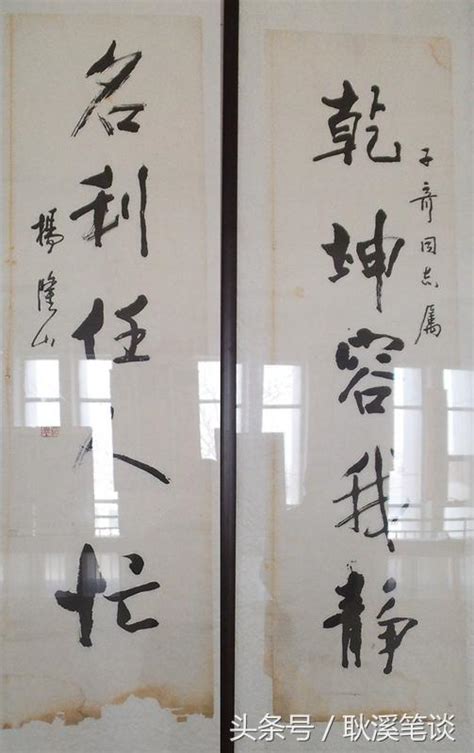 子齐同志属
乾坤容我静
名利任人忙
杨隆山
头条号／耿溪笔谈